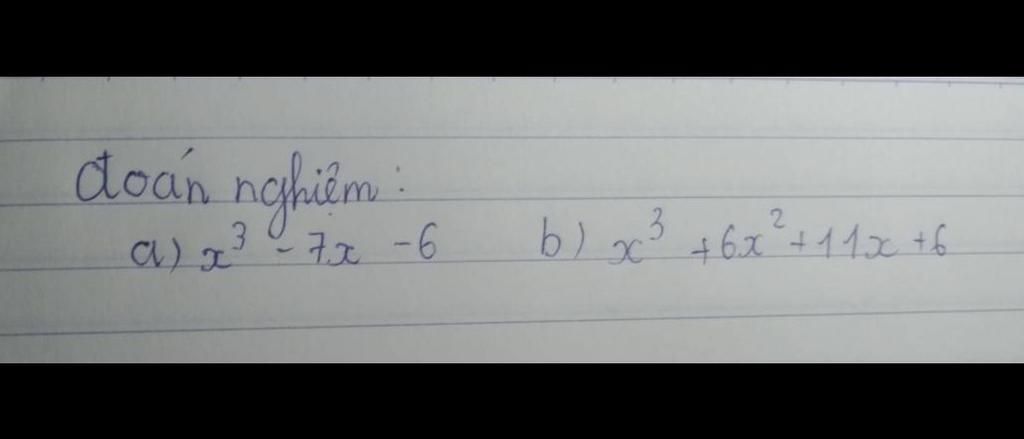 đoán nghiệm :
a) x³ - 7x - 6 b) x³ + 6x² + 11x + 6